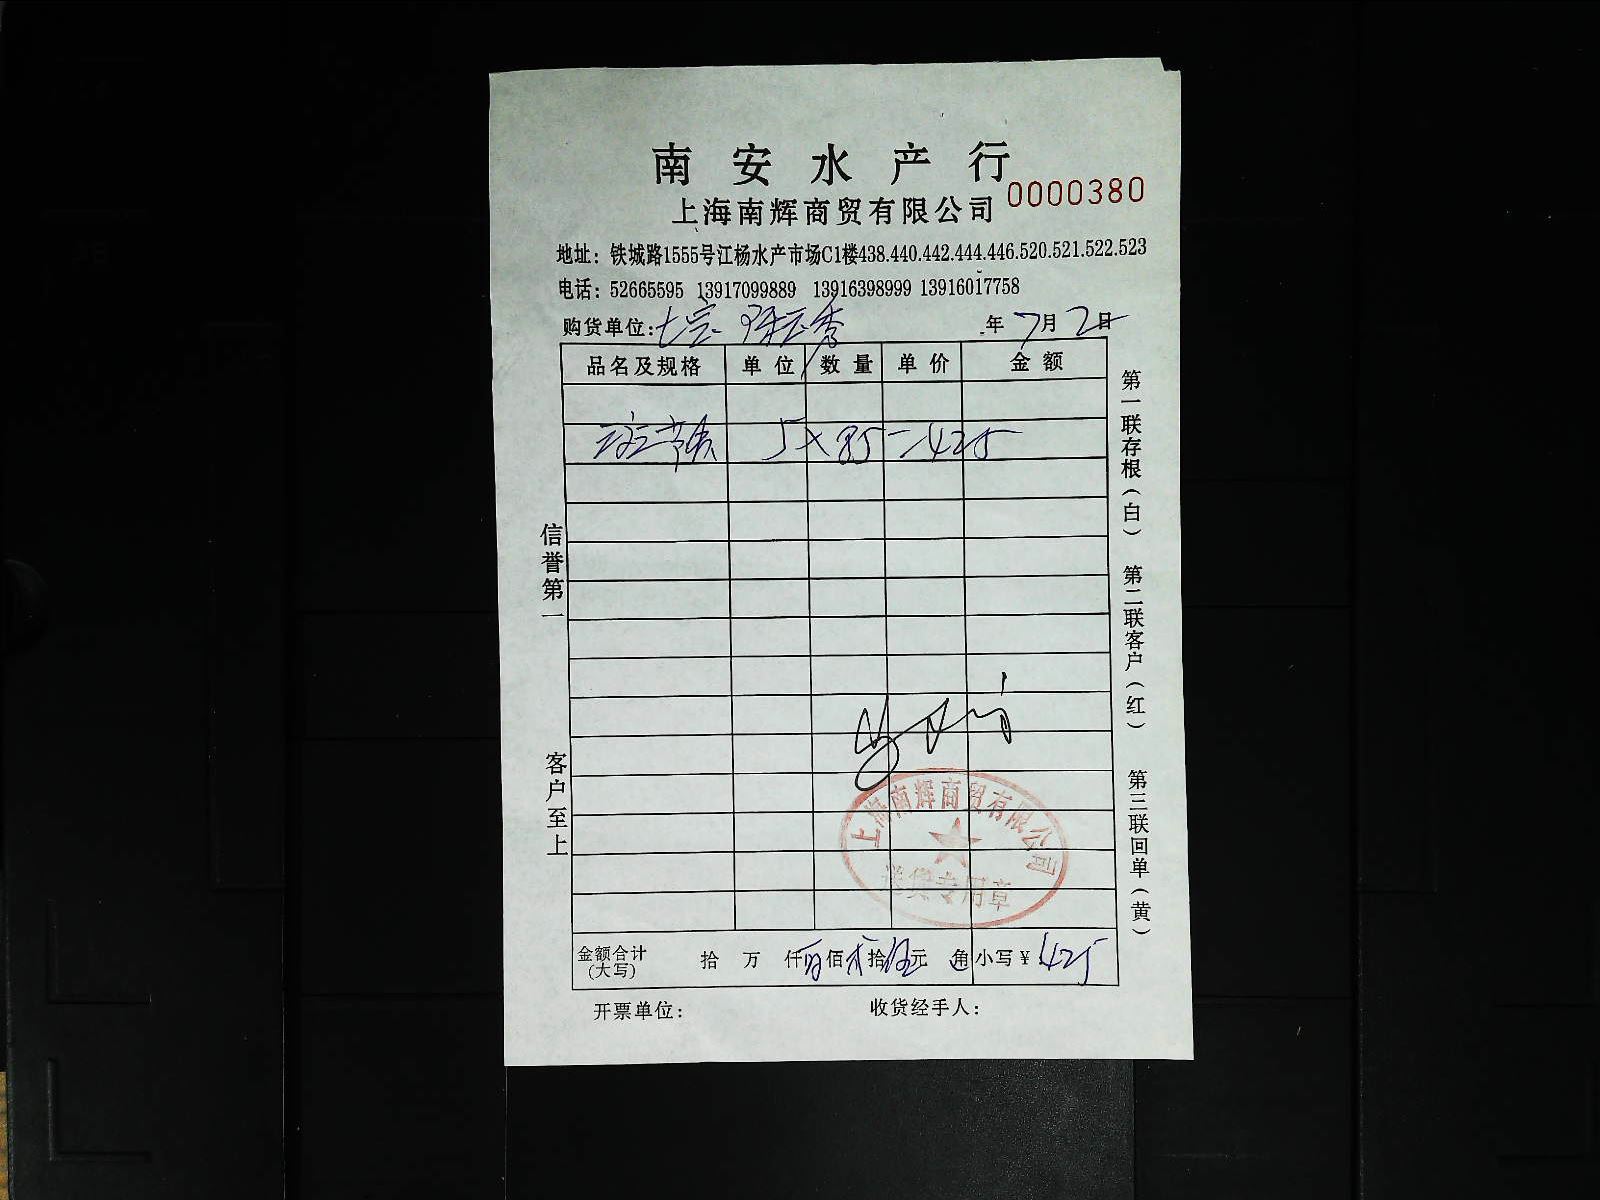 南安水产行
上海南辉商贸有限公司 0000380
地址：铁城路1555号江杨水产市场C1楼438.440.442.444.446.520.521.522.523
电话：52665595 13917099889 13916398999 13916017758
购货单位： 年 7月 2日
品名及规格 单位 数量 单价 金额
5×85=425
上海南辉商贸有限公司
送货专用章
金额合计(大写) 拾 万 仟 佰 拾 伍元 角 小写¥ 425
开票单位： 收货经手人：
信誉第一 客户至上
第一联存根(白) 第二联客户(红) 第三联回单(黄)